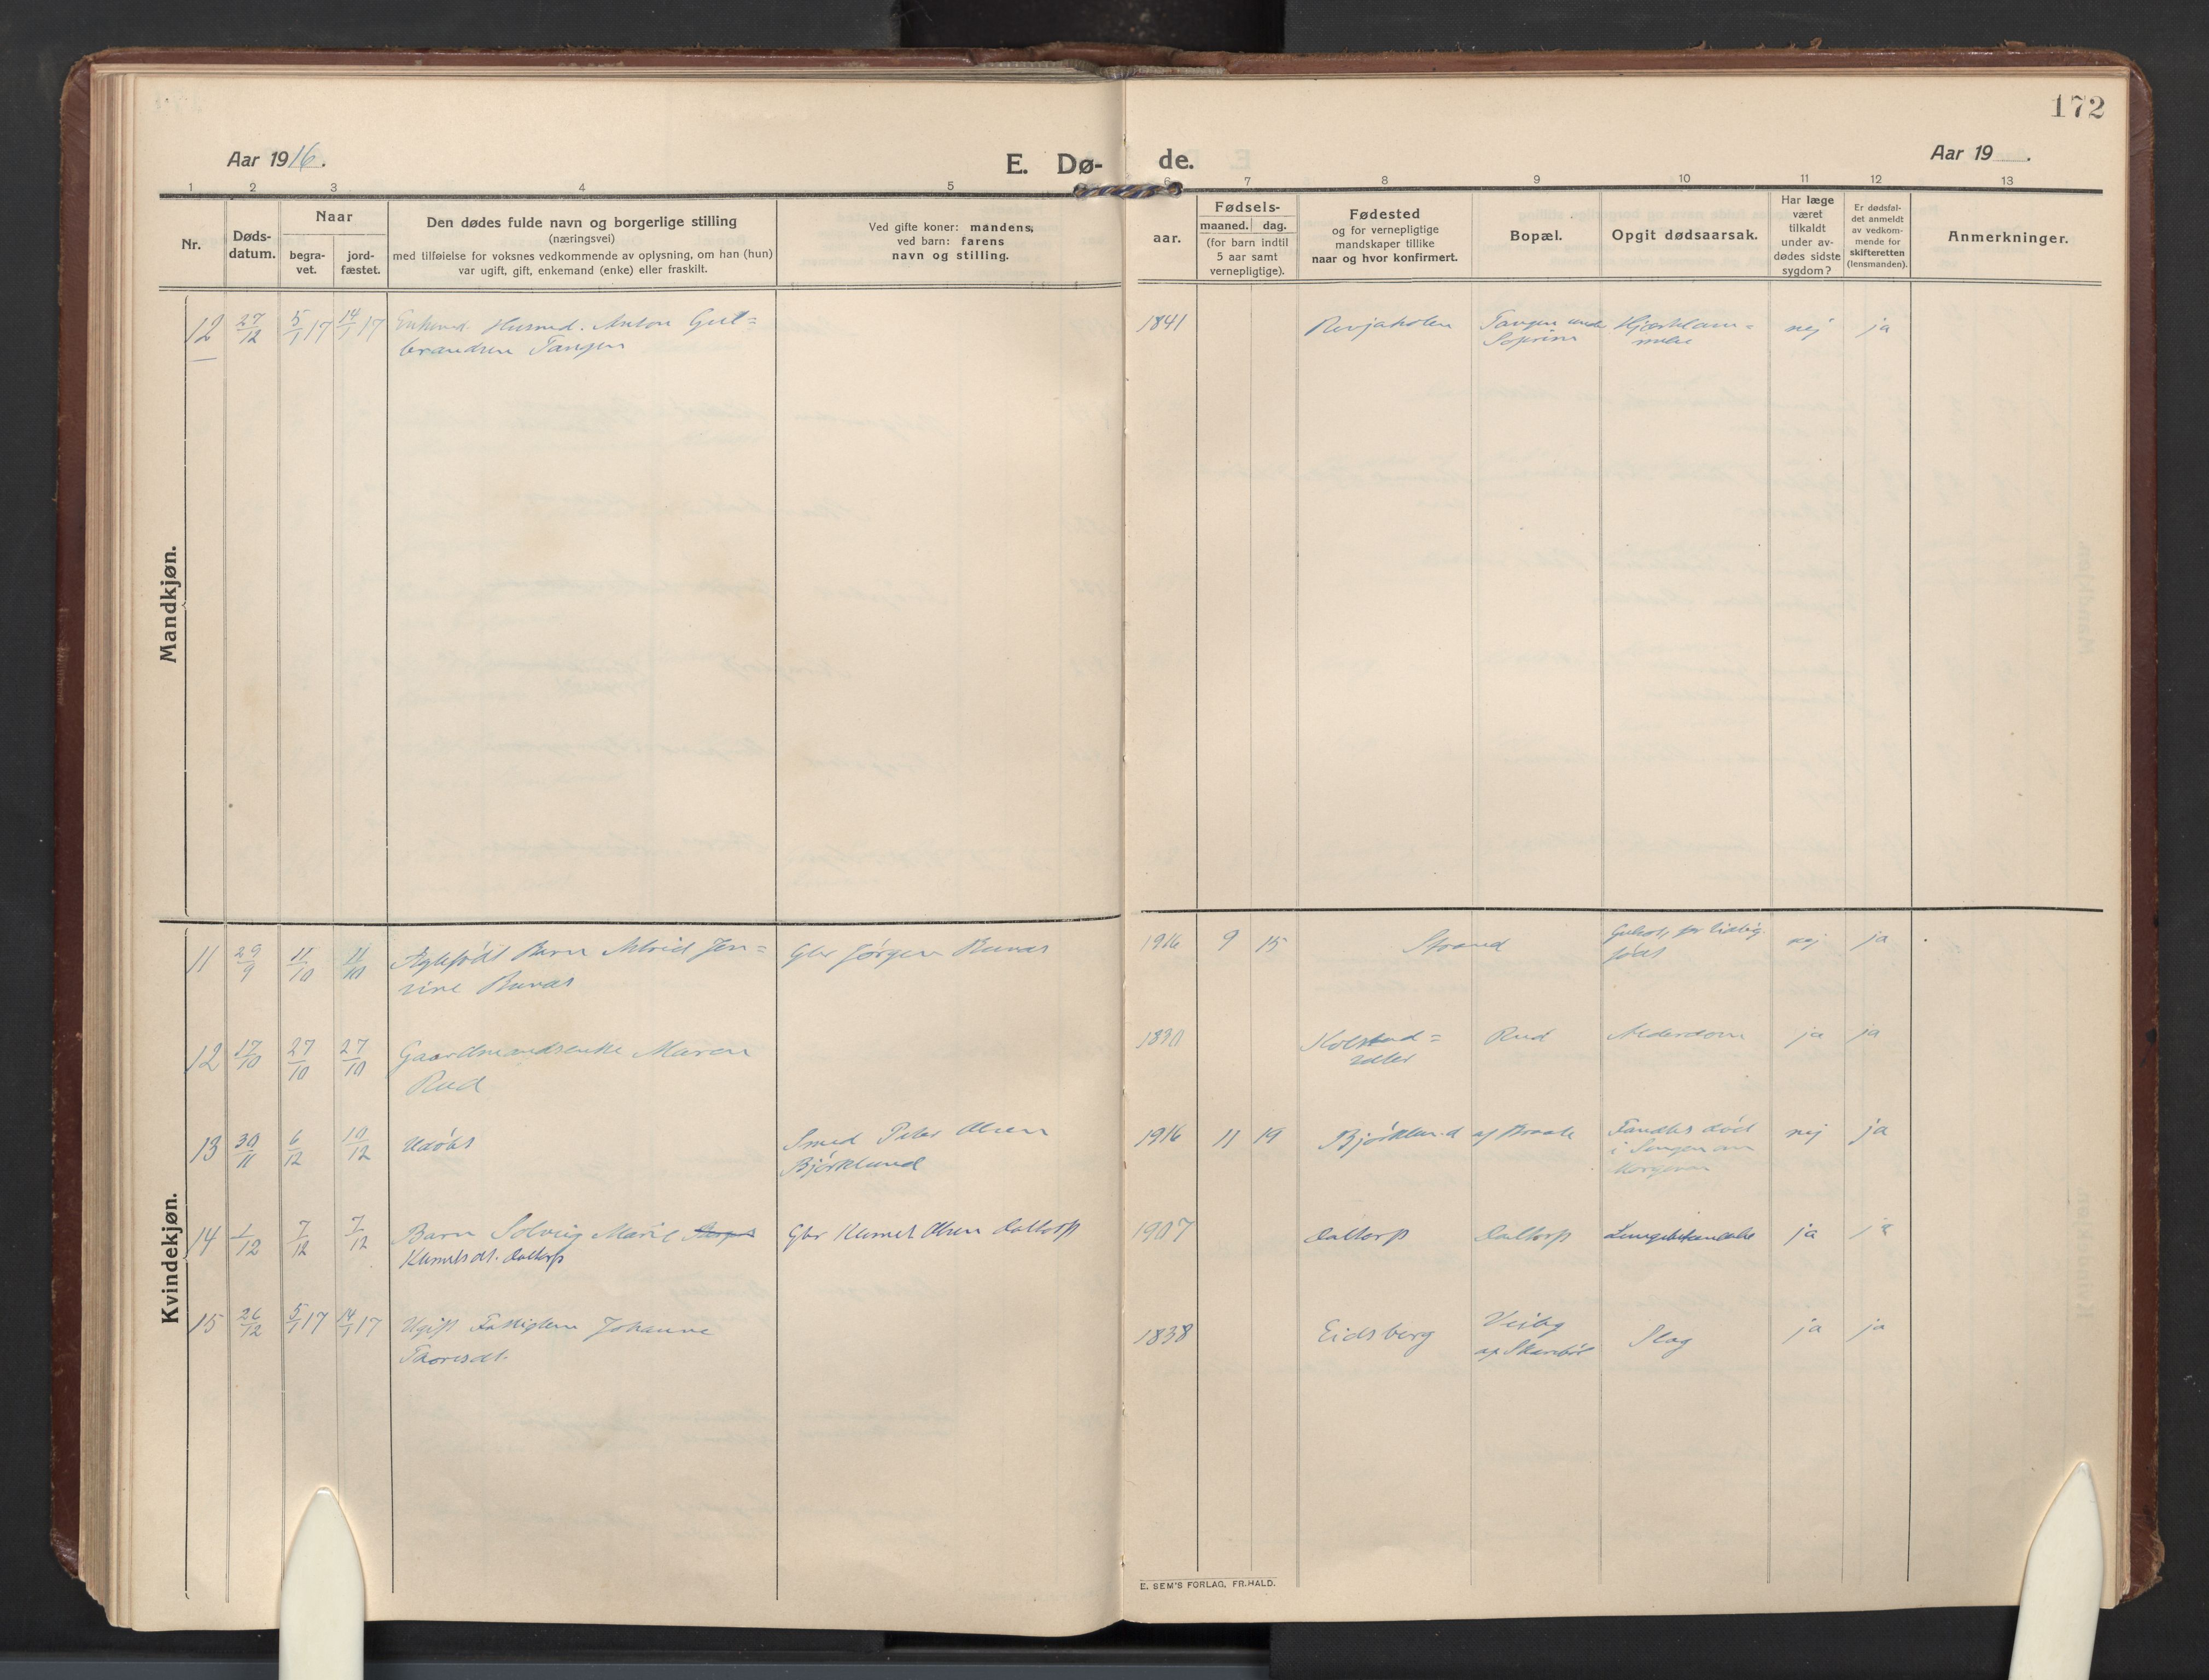 172
Aar 1916.
E. Dø-
de.
Aar 19 .
1 2 3 4 5 6 7 8 9 10 11 12 13
Nr.
Døds-
datum.
Naar
begra-
vet.
jord-
fæstet.
Den dødes fulde navn og borgerlige stilling
(næringsvei)
med tilføielse for voksnes vedkommende av oplysning, om han (hun)
var ugift, gift, enkemand (enke) eller fraskilt.
Ved gifte koner: mandens,
ved barn: farens
navn og stilling.
aar.
Fødsels-
maaned. dag.
(for barn indtil
5 aar samt
vernepligtige).
Fødested
og for vernepligtige
mandskaper tillike
naar og hvor konfirmert.
Bopæl.
Opgit dødsaarsak.
Har læge
været
tilkaldt
under av-
dødes sidste
sygdom?
Er dødsfal-
det anmeldt
av vedkom-
mende for
skifteretten
(lensmanden).
Anmerkninger.
Mandkjøn.
12 27/12 5/1 17 14/1 17 Enkemd. Husmd. Anton Gul=
brandsen Tangen
1841 Tangen under Hjerteslam= nej ja
Kvindekjøn.
11 29/9 11/10 11/10 Ægtefødt Barn Alvid Jen=
sine Bunæs
Gbr Jørgen Bunæs
1916 9 15 Strand for tidlig nej ja
født
12 17/10 27/10 27/10 Gaardmandsenke Maren
Rud
1830 Kolstad= Rud Alderdom ja ja
13 30/11 6/12 10/12 Udøbt
Smed Peter Olsen
Bjørklund
1916 11 19 Bjørklund af Braate Fandtes død nej ja
i Sengen om
Morgenen
14 1/12 7/12 7/12 Barn Solveig Marie
Klemetsdt. Daltorp
Gbr Klemet Olsen Daltorp
1907 Daltorp Daltorp Lungebetændelse ja ja
15 26/12 5/1 17 14/1 17 Ugift Fattiglem Johanne
Thoresdt.
1838 Eidsberg Veiby Slag ja ja
E. SEM'S FORLAG, FR.HALD.